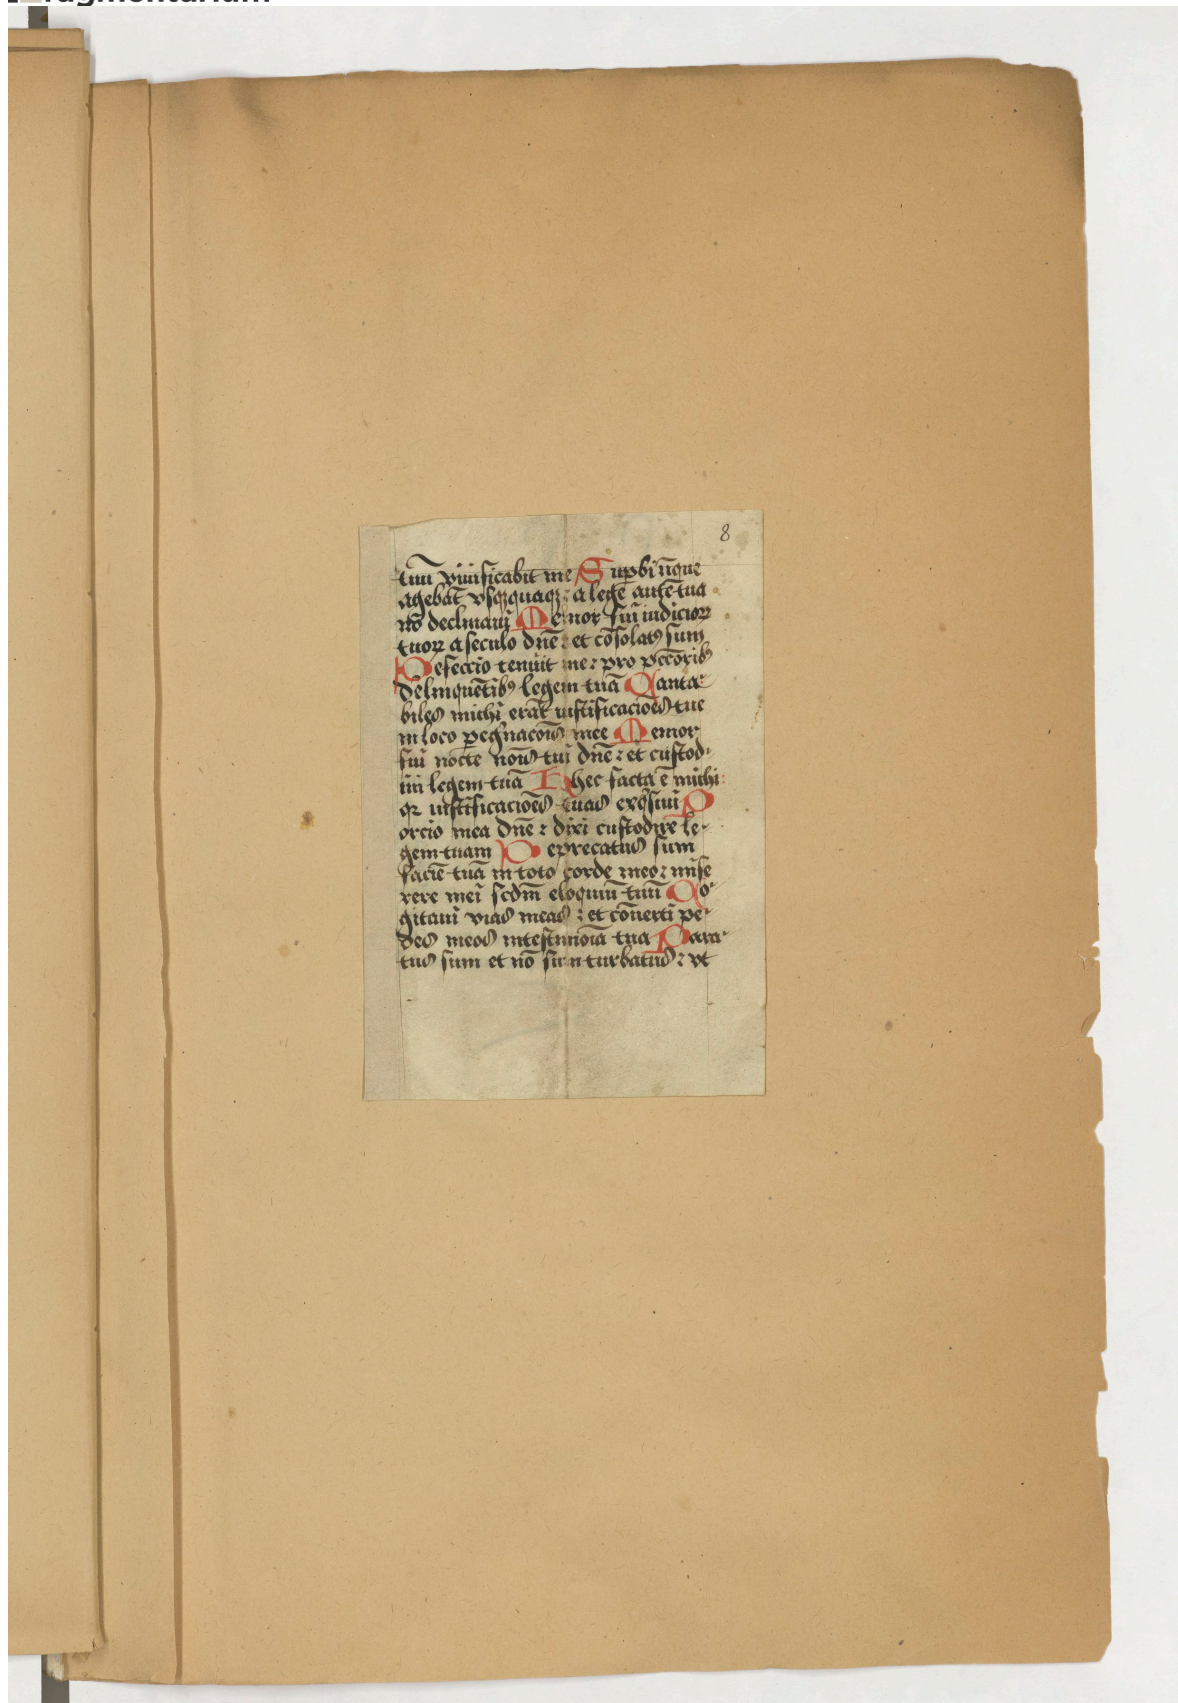 fragmentarium
8
tuū viuificabit me Supbi īique
agebāt vsq̨quaq̨ : a lege autē tua
nō declinaui Memor fui iudicioꝝ
tuoꝝ a seculo dn̄e : et cōsolatꝰ sum
Defeccio tenuit me : pro pccōribꝰ
delinquētibꝰ legem tuā Canta-
biles michi erāt iustificacioēs tue
in loco pegrinacōis mee Memor
fui nocte nois tui dn̄e : et custod-
iui legem tuā Hec facta ē michi :
qꝛ iustificacioēs tuas exq̄siui P
orcio mea dn̄e : dixi custodire le-
gem tuam Deprecatus sum
faciē tuā in toto corde meo : mise
rere mei scdm̄ eloquiū tuū Co-
gitaui vias meas : et cōuerti pe-
des meos in testimōia tua Para-
tus sum et nō sum turbatus : vt